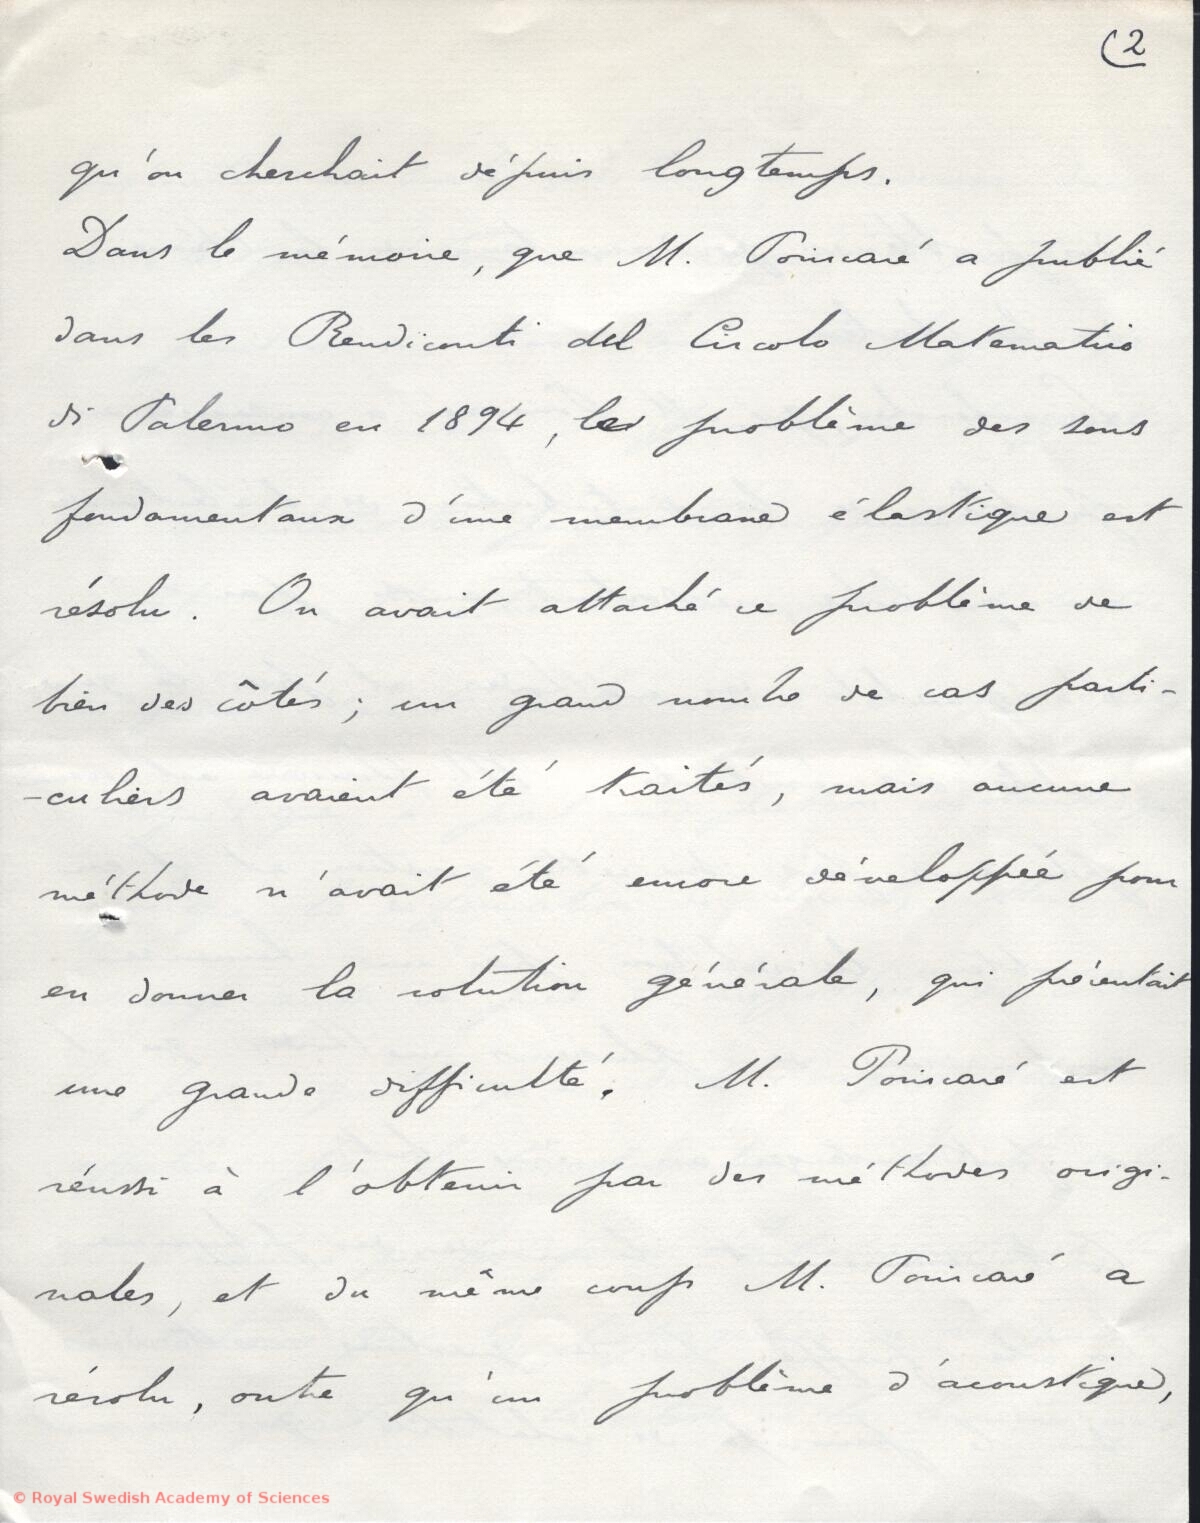 (2
qu'on cherchait dépuis longtemps.
Dans le mémoire, que M. Poincaré a publié
dans les Rendiconti del Circolo Matematico
di Palermo en 1894, le problème des sons
fondamentaux d'une membrane élastique est
résolu. On avait attaché ce problème de
bien des côtés; un grand nombre de cas parti-
-culiers avaient été traités, mais aucune
méthode n'avait été encore développée pour
en donner la solution générale, qui présentait
une grande difficulté. M. Poincaré est
réussi à l'obtenir par des méthodes origi-
nales, et du même coup M. Poincaré a
résolu, outre qu'un problème d'acoustique,
© Royal Swedish Academy of Sciences